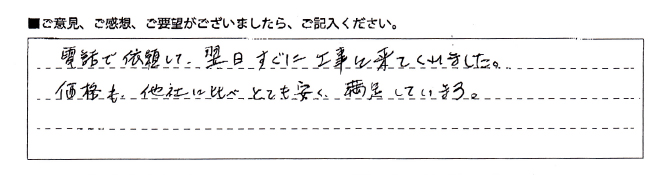 ■ご意見、ご感想、ご要望がございましたら、ご記入ください。
電話で依頼して、翌日すぐに工事に来てくれました。
価格も、他社に比べとても安く、満足しています。